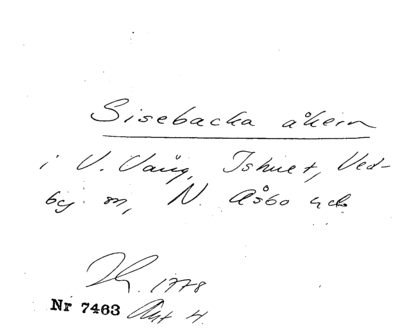 Sisebacka åkern
i V. Vång, Ishult, Ved-
by sn, N. Åsbo hd.
1778
Nr 7463 Akt 4.